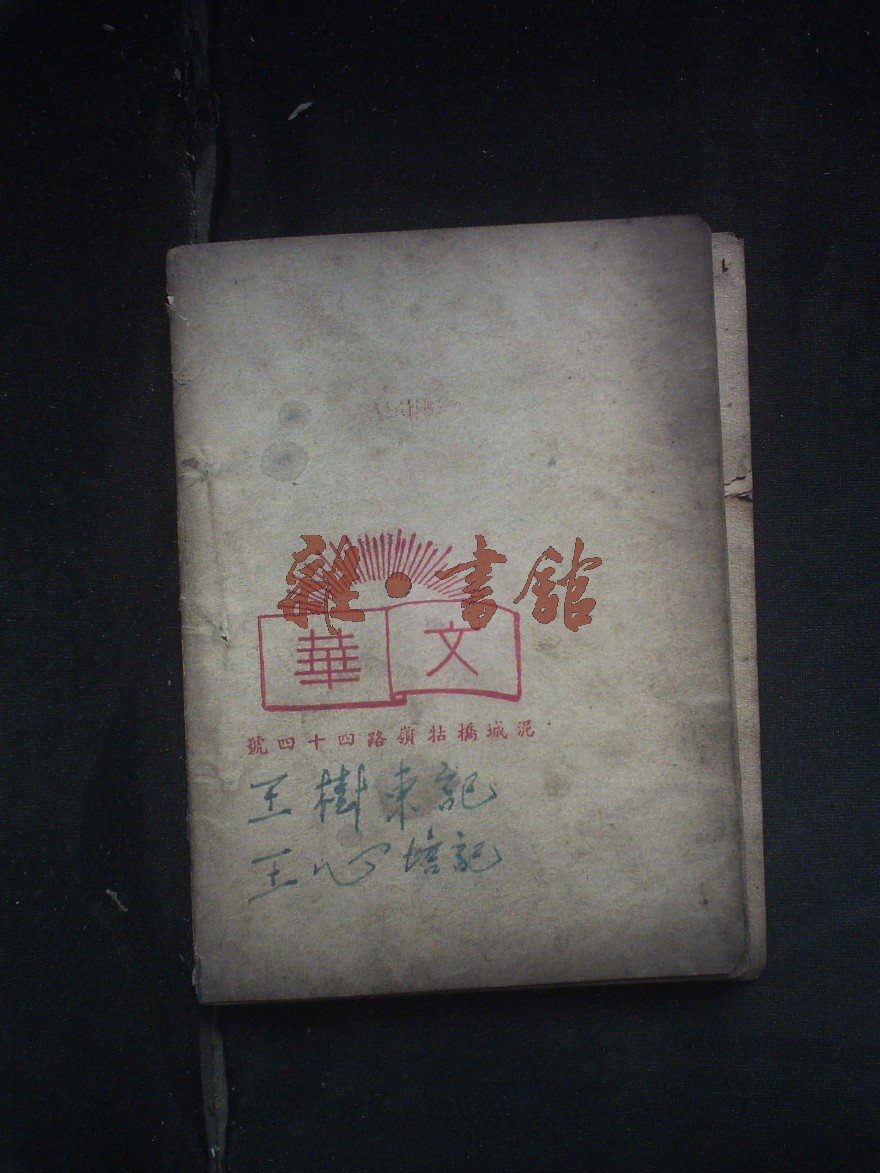 雜·書館
文華
泥城橋牯嶺路四十四號
王樹東記
王心培記